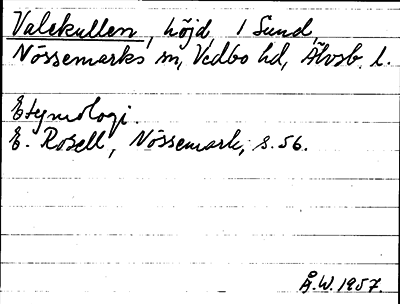 Valekullen, höjd, 1 Sund,
Nössemarks sn, Vedbo hd, Älvsb. l.
Etymologi.
E. Rosell, Nössemark, s. 56.
Å.W. 1957.